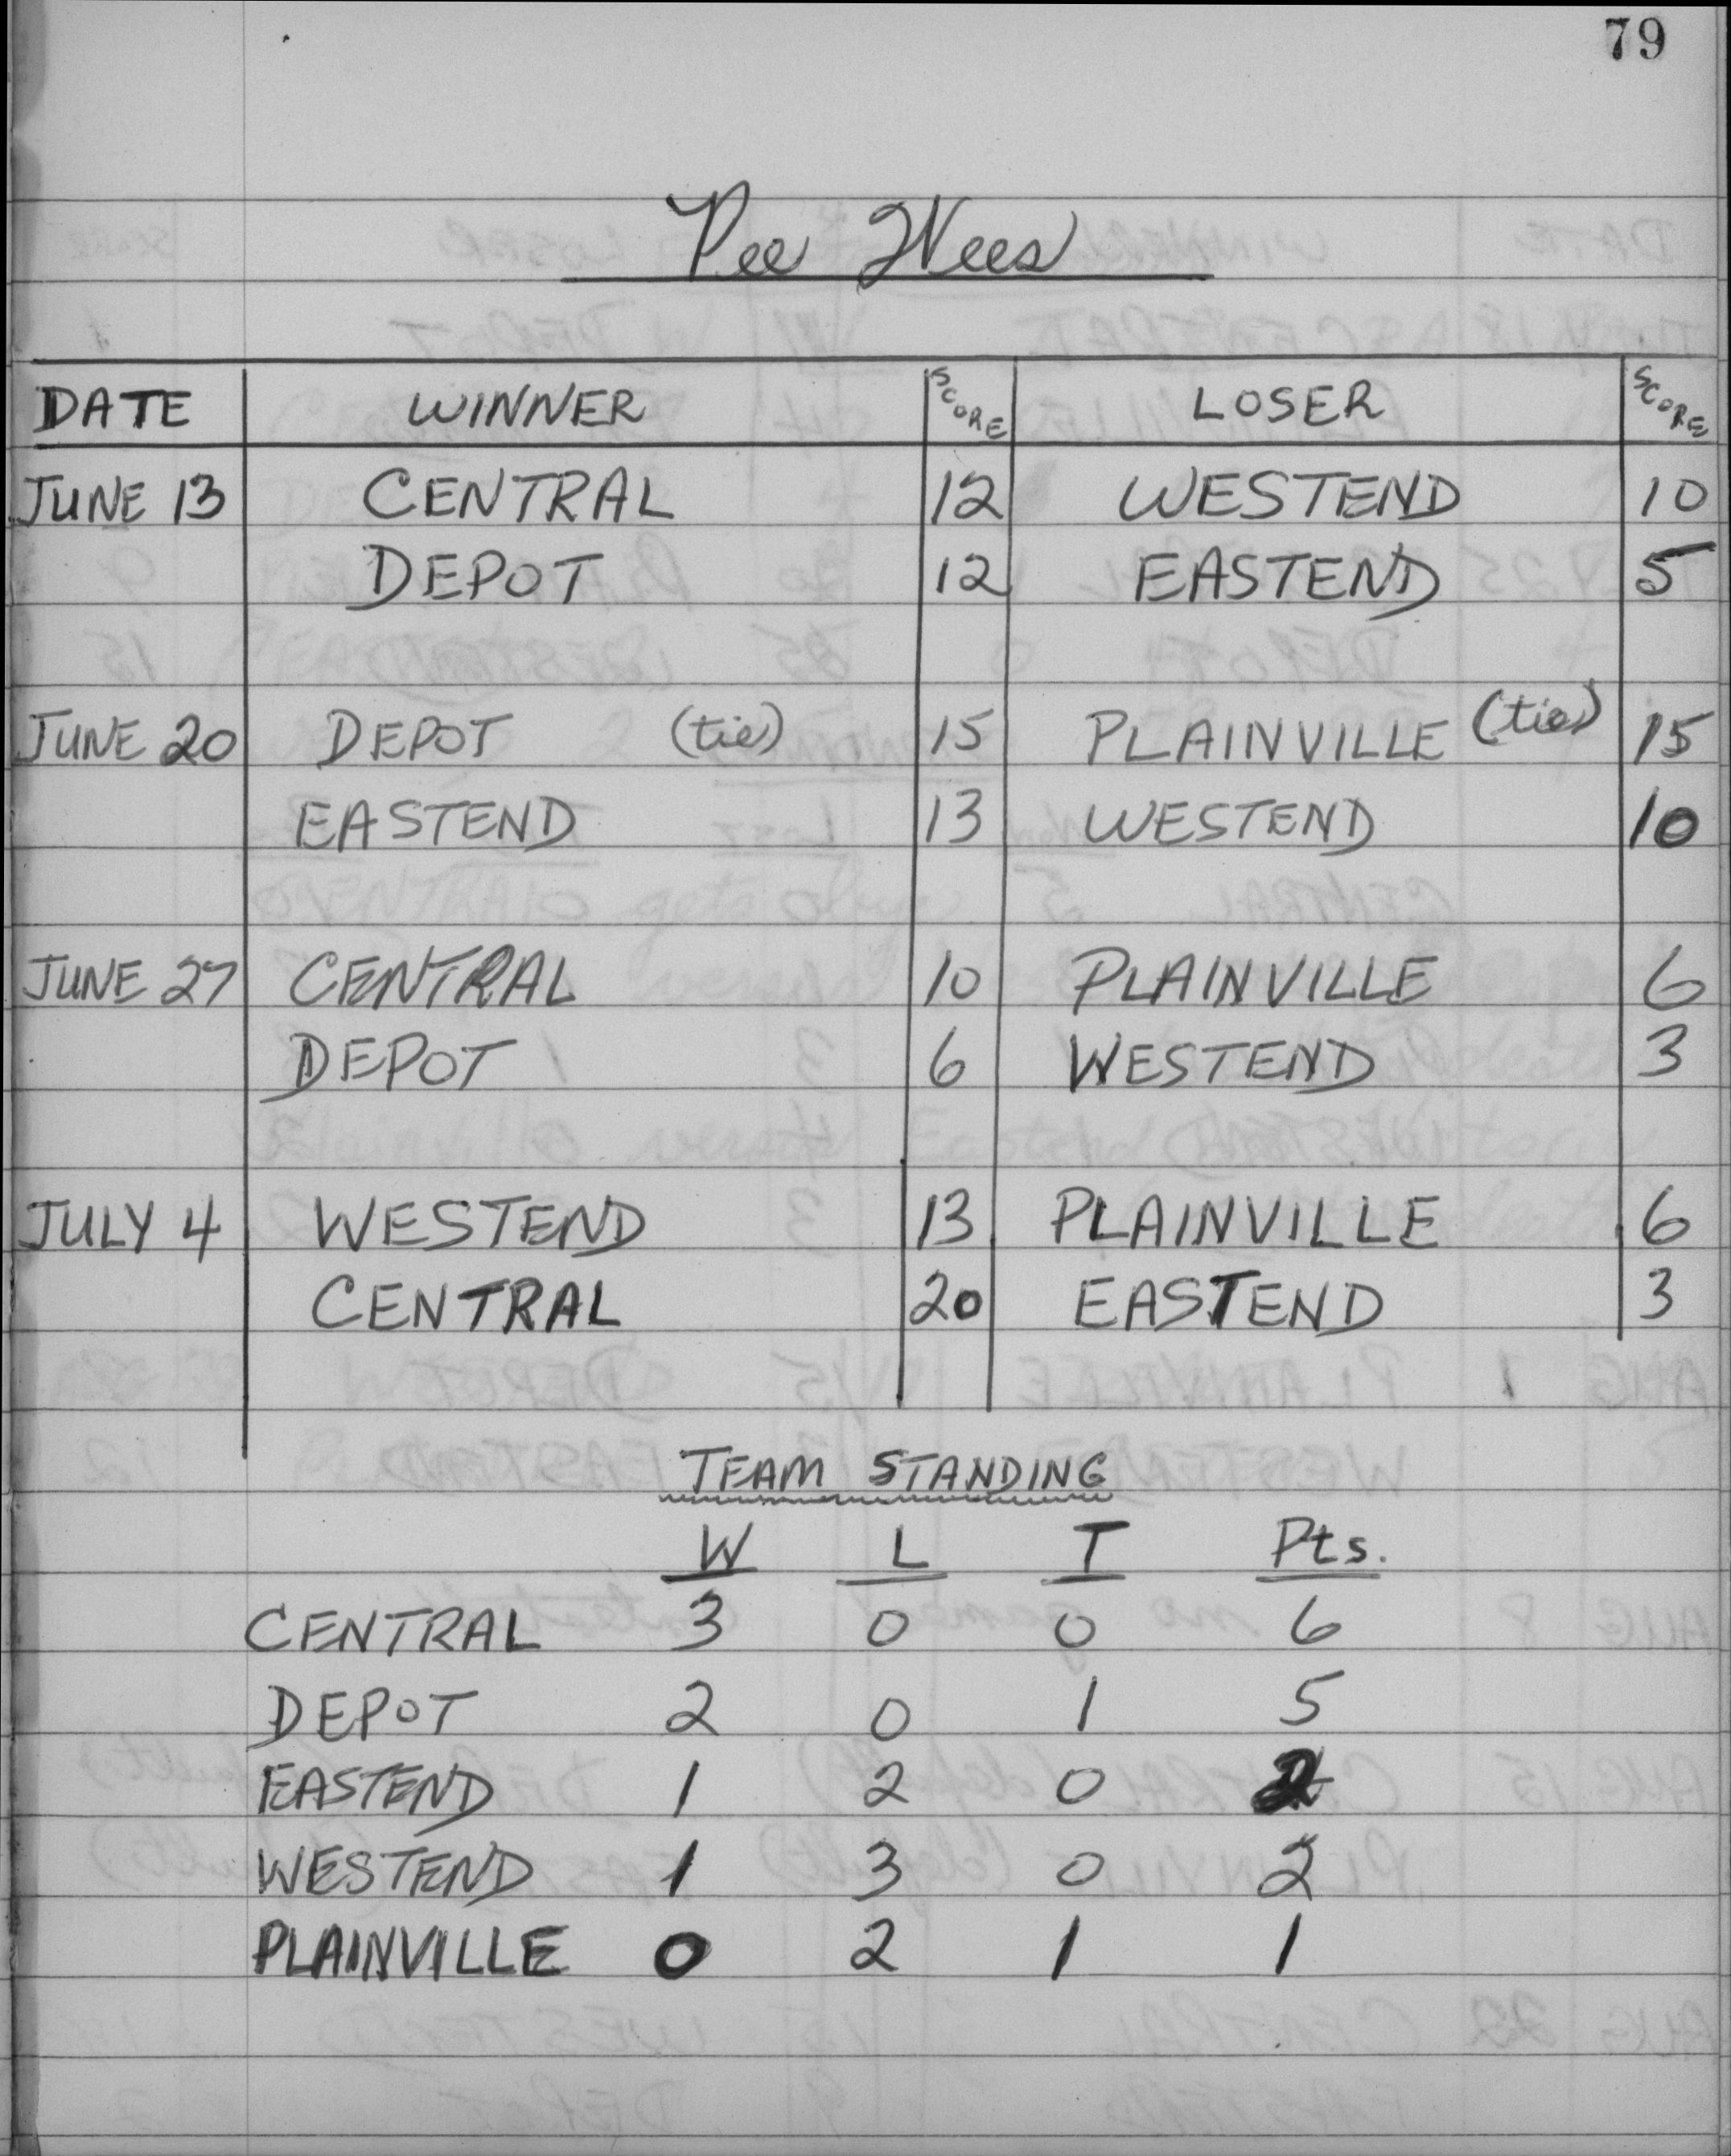 79
Pee Wees
DATE WINNER SCORE LOSER SCORE
JUNE 13 CENTRAL 12 WESTEND 10
DEPOT 12 EASTEND 5
JUNE 20 DEPOT (tie) 15 PLAINVILLE (tie) 15
EASTEND 13 WESTEND 10
JUNE 27 CENTRAL 10 PLAINVILLE 6
DEPOT 6 WESTEND 3
JULY 4 WESTEND 13 PLAINVILLE 6
CENTRAL 20 EASTEND 3
TEAM STANDING
W L T Pts.
CENTRAL 3 0 0 6
DEPOT 2 0 1 5
EASTEND 1 2 0 2
WESTEND 1 3 0 2
PLAINVILLE 0 2 1 1